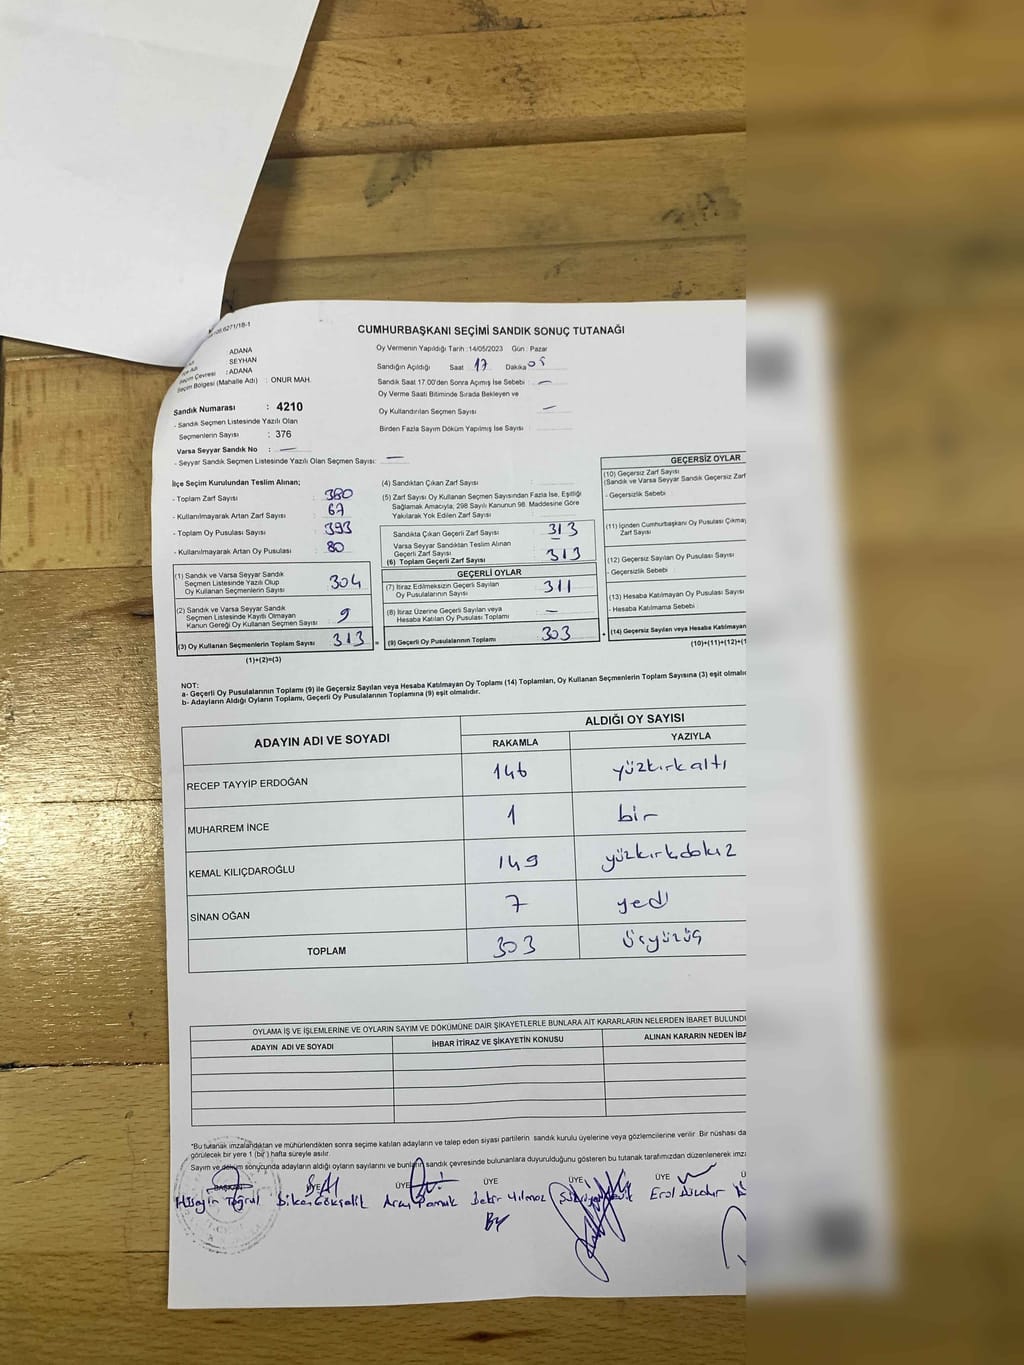 CUMHURBAŞKANI SEÇİMİ SANDIK SONUÇ TUTANAĞI
: ADANA
: SEYHAN
: ADANA
Seçim Bölgesi (Mahalle Adı) : ONUR MAH.
Sandık Numarası : 4210
- Sandık Seçmen Listesinde Yazılı Olan
Seçmenlerin Sayısı : 376
Varsa Seyyar Sandık No : —
- Seyyar Sandık Seçmen Listesinde Yazılı Olan Seçmen Sayısı: —
Oy Vermenin Yapıldığı Tarih :14/05/2023 Gün : Pazar
Sandığın Açıldığı Saat 17 Dakika 05
Sandık Saat 17.00'den Sonra Açmış İse Sebebi : —
Oy Verme Saati Bitiminde Sırada Bekleyen ve
Oy Kullandırılan Seçmen Sayısı —
Birden Fazla Sayım Döküm Yapılmış İse Sayısı :
İlçe Seçim Kurulundan Teslim Alınan;
- Toplam Zarf Sayısı : 380
- Kullanılmayarak Artan Zarf Sayısı : 67
- Toplam Oy Pusulası Sayısı : 393
- Kullanılmayarak Artan Oy Pusulası : 80
(1) Sandık ve Varsa Seyyar Sandık
Seçmen Listesinde Yazılı Olup
Oy Kullanan Seçmenlerin Sayısı 304
(2) Sandık ve Varsa Seyyar Sandık
Seçmen Listesinde Kayıtlı Olmayan
Kanun Gereği Oy Kullanan Seçmen Sayısı 9
(3) Oy Kullanan Seçmenlerin Toplam Sayısı 313 =
(1)+(2)=(3)
(4) Sandıktan Çıkan Zarf Sayısı :
(5) Zarf Sayısı Oy Kullanan Seçmen Sayısından Fazla İse, Eşitliği
Sağlamak Amacıyla, 298 Sayılı Kanunun 98. Maddesine Göre
Yakılarak Yok Edilen Zarf Sayısı :
Sandıkta Çıkan Geçerli Zarf Sayısı 313
Varsa Seyyar Sandıktan Teslim Alınan
Geçerli Zarf Sayısı —
(6) Toplam Geçerli Zarf Sayısı 313
GEÇERLİ OYLAR
(7) İtiraz Edilmeksizin Geçerli Sayılan
Oy Pusulasının Sayısı 311
(8) İtiraz Üzerine Geçerli Sayılan veya
Hesaba Katılan Oy Pusulası Toplamı —
(9) Geçerli Oy Pusulalarının Toplamı 303 +
GEÇERSİZ OYLAR
(10) Geçersiz Zarf Sayısı
(Sandık ve Varsa Seyyar Sandık Geçersiz Zarf
- Geçersizlik Sebebi
(11) İçinden Cumhurbaşkanı Oy Pusulası
Zarf Sayısı
(12) Geçersiz Sayılan Oy Pusulası Sayısı
- Geçersizlik Sebebi
(13) Hesaba Katılmayan Oy Pusulası Sayısı
- Hesaba Katılmama Sebebi
(14) Geçersiz Sayılan veya Hesaba Katılmayan
NOT:
a- Geçerli Oy Pusulalarının Toplamı (9) ile Geçersiz Sayılan veya Hesaba Katılmayan Oy Toplamı (14) Toplamları, Oy Kullanan Seçmenlerin Toplam Sayısına (3) eşit
b- Adayların Aldığı Oyların Toplamı, Geçerli Oy Pusulalarının Toplamına (9) eşit olmalıdır.
ADAYIN ADI VE SOYADI ALDIĞI OY SAYISI
RAKAMLA YAZIYLA
RECEP TAYYİP ERDOĞAN 146 yüzkırkaltı
MUHARREM İNCE 1 bir
KEMAL KILIÇDAROĞLU 149 yüzkırkdokuz
SİNAN OĞAN 7 yedi
TOPLAM 303 üçyüzüç
OYLAMA İŞ VE İŞLEMLERİNE VE OYLARIN SAYIM VE DÖKÜMÜNE DAİR ŞİKAYETLERLE BUNLARA AİT KARARLARIN NELERDEN İBARET
ADAYIN ADI VE SOYADI İHBAR İTİRAZ VE ŞİKAYETİN KONUSU ALINAN KARARIN NEDEN
*Bu tutanak imzalandıktan ve mühürlendikten sonra seçime katılan adayların ve talep eden siyasi partilerin sandık kurulu üyelerine veya gözlemcilerine verilir. Bir nüshası da
görülecek bir yere 1 (bir) hafta süreyle asılır.
Sayım ve döküm sonucunda adayların aldığı oyların sayılarını ve bunların sandık çevresinde bulunanlara duyurulduğunu gösteren bu tutanak tarafımızdan düzenlenerek
BAŞKAN ÜYE ÜYE ÜYE ÜYE ÜYE
Hüseyin Toğrul Pamuk Bekir Yılmaz Erol